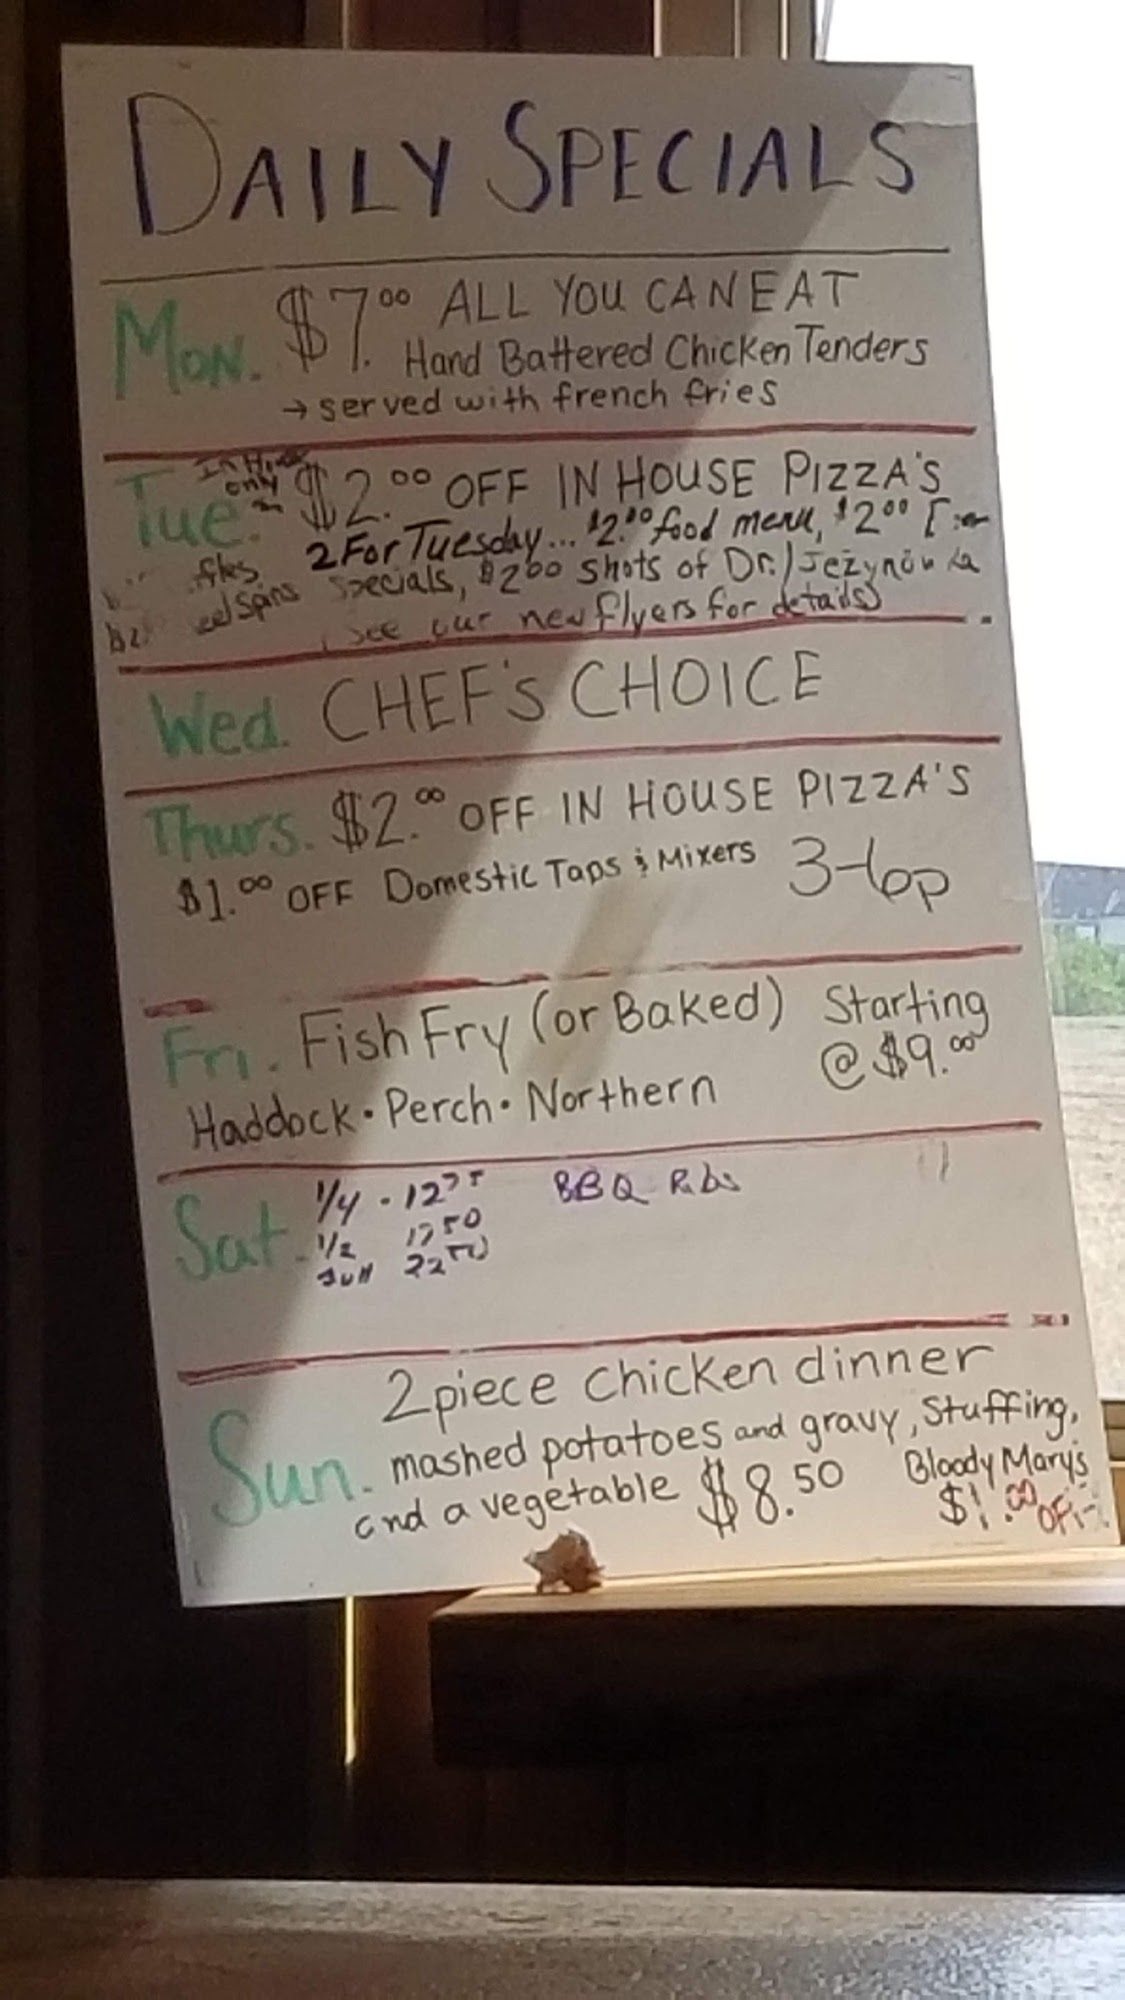 DAILY SPECIALS
Mon. $7.00 ALL YOU CAN EAT
Hand Battered Chicken Tenders
→ served with french fries
In House only
Tue. $2.00 OFF IN HOUSE PIZZA'S
2 For Tuesday... $2.00 food menu, $2.00
specials, $2.00 shots of Dr./Jezynowka
see our new flyers for details)
Wed. CHEF'S CHOICE
Thurs. $2.00 OFF IN HOUSE PIZZA'S
$1.00 OFF Domestic Taps & Mixers 3-6p
Fri. Fish Fry (or Baked) Starting
@ $9.00
Haddock • Perch • Northern
Sat. 1/4 - 12 BBQ Ribs
1/2 17 50
full 22 50
2 piece chicken dinner
Sun. mashed potatoes and gravy, Stuffing,
and a vegetable $8.50 Bloody Mary's
$1.00 OFF